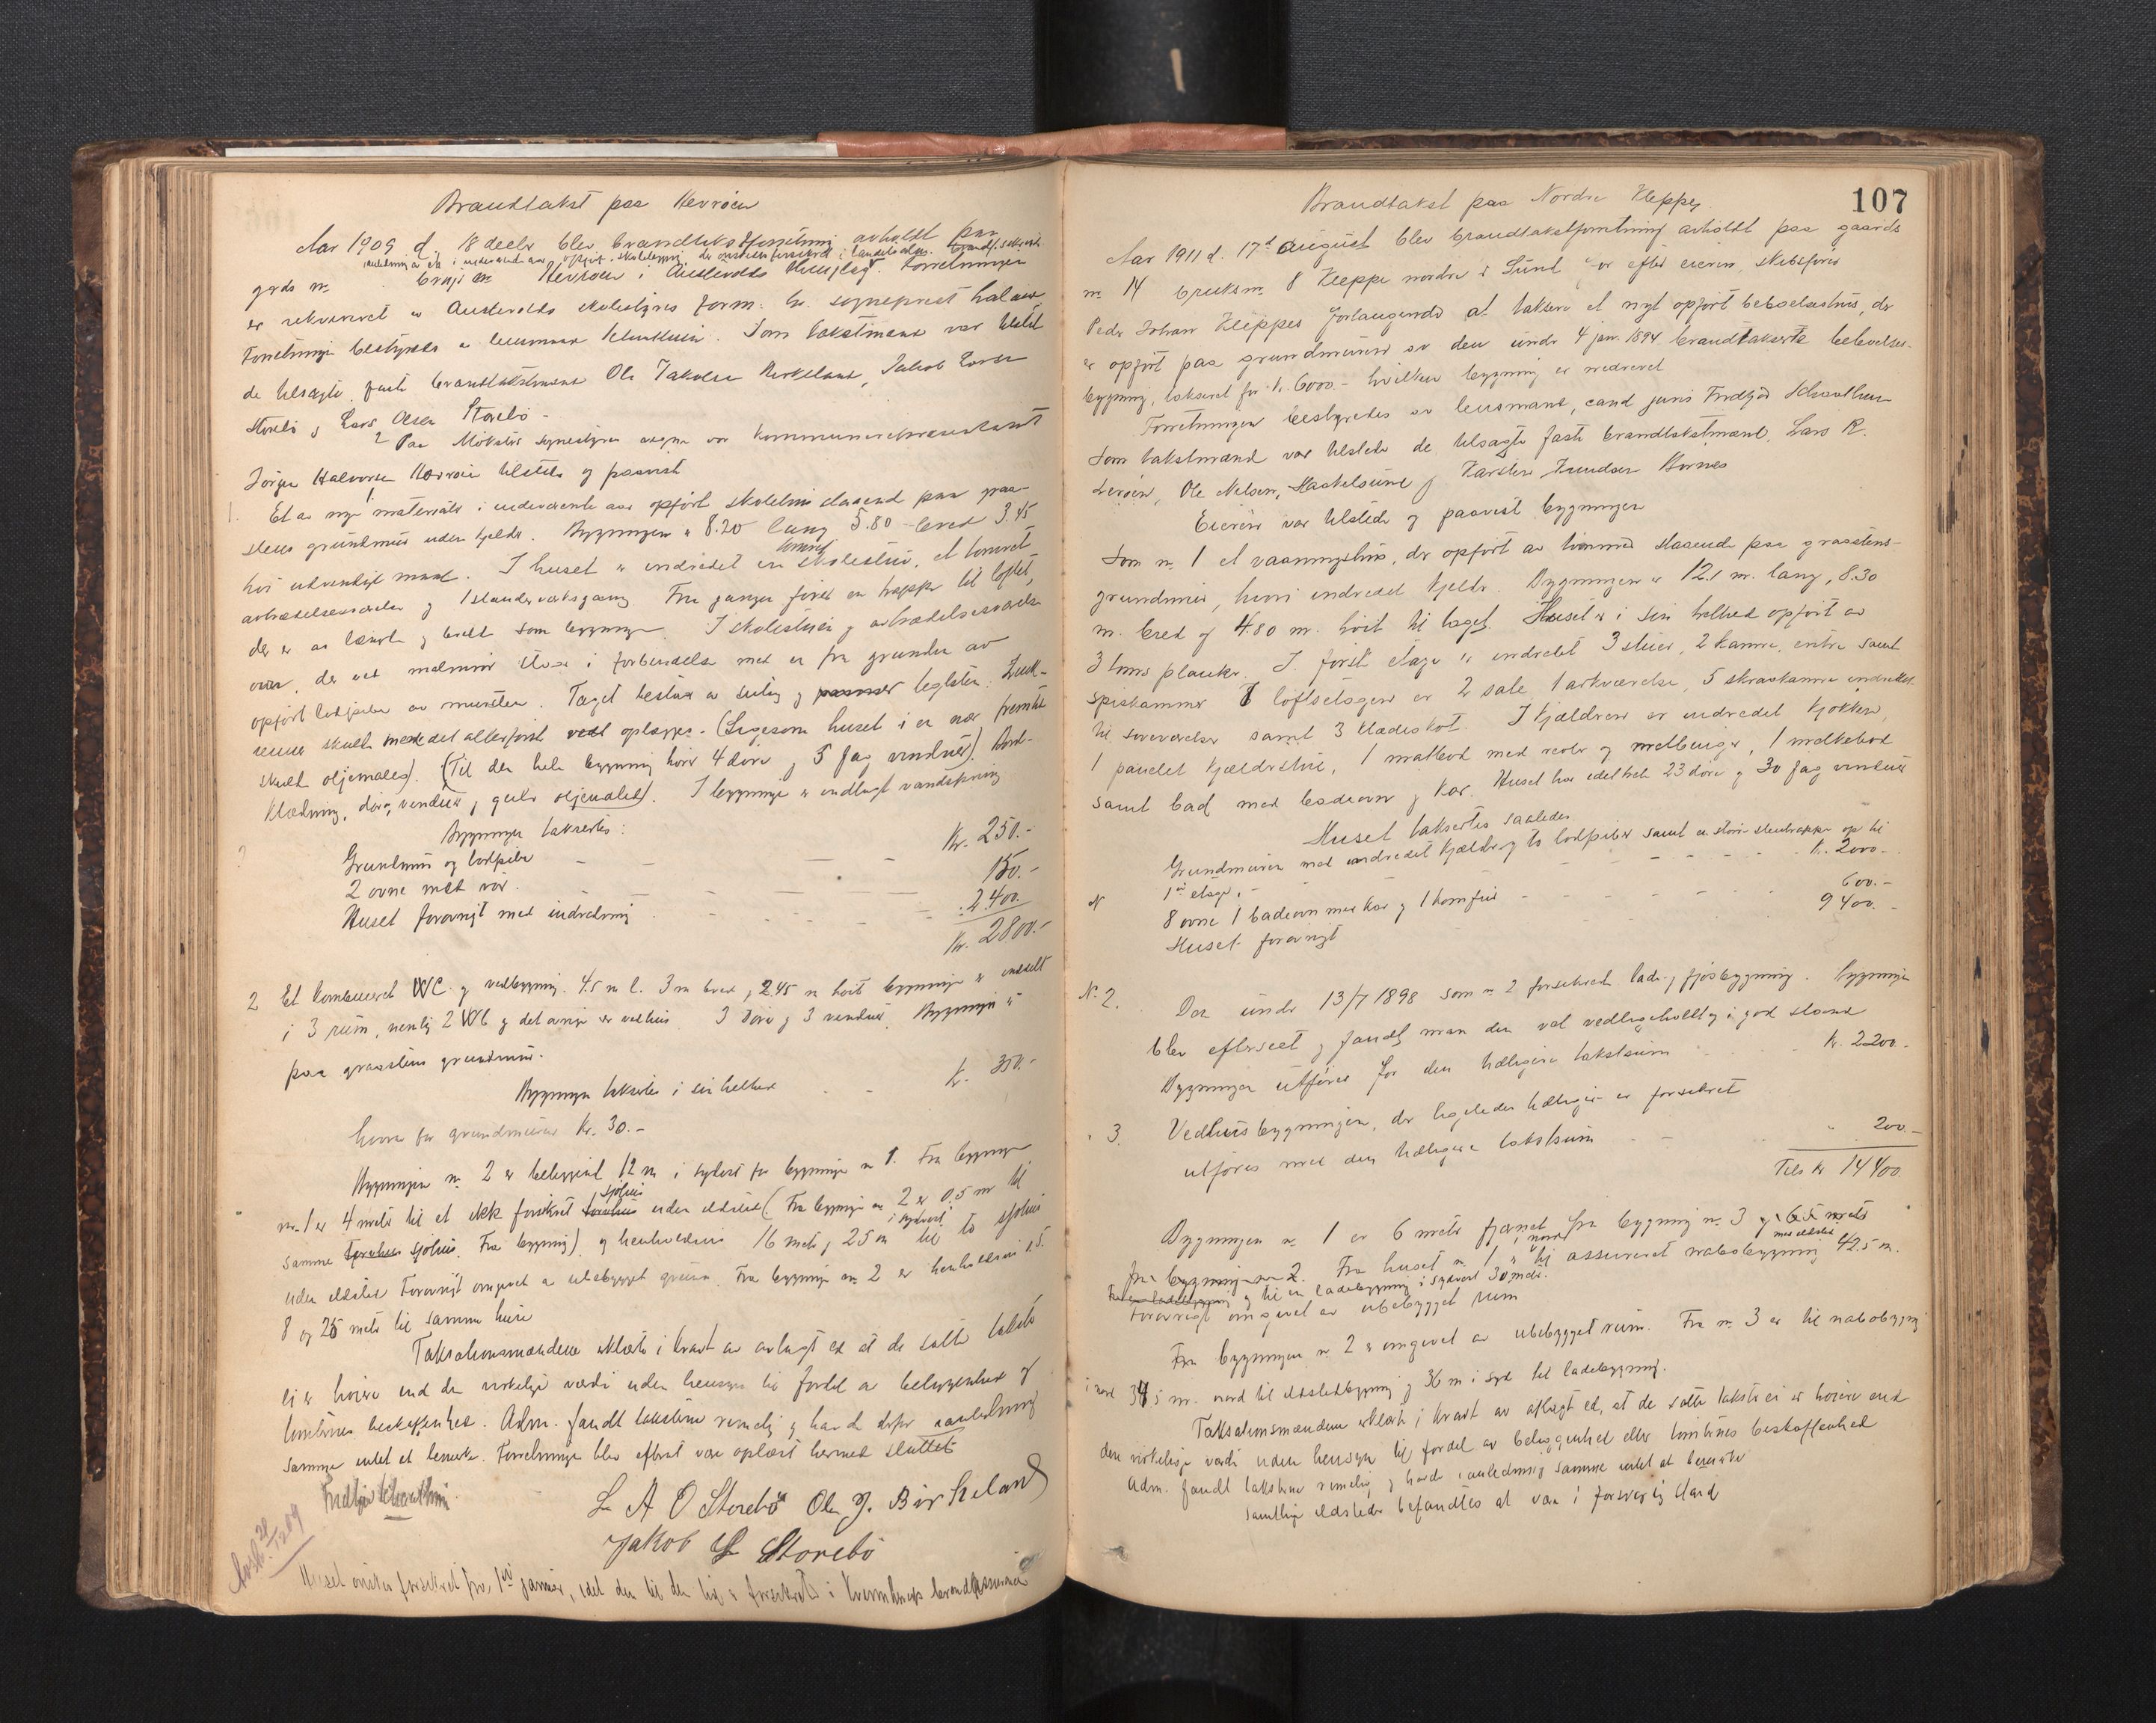 Brandtakst paa Hevrøen
Aar 1909 d. 18 decbr blev brandtakstforretning avholdt paa
gards nr. brugs nr. Hevrøen i Austevolds thinglag. Forretningen
er rekvireret av Austevolds skolestyres form. hr. sogneprest
Forretningen bestyredes av lensmand Schanthun. Som takstmænd var tilsted
de tilsagte faste brandtakstmænd Ole Jakobsen Birkeland, Jakob Larsen
Storebø og Lars Olsen Storebø -
Paa Møkster sognestyres vegne var kommunerepresentant
Jørgen Halvorsen Hevrøen tilstede og paaviste
1. Et av nye materialer i indeværende aar opført skolehus staaende paa graa-
stens grundmur uden kjelder. Bygningen er 8.20 lang 5.80 bred 3.45
høi udvendigt maal. I huset er indredet en skolestue, et tømret
avtrædelsesværelse og 1 standerværksgang Fra gangen fører en trappe til loftet,
der er av længde og bredde som bygningen. I skolestuen og avtrædelsesværelse
ovn, der ved staar i forbindelse med en fra grunden av
opført lodpibe av mursten. Taget bestaar av sutag og teglsten.
skulde med det allerførste oplægges. (Ligesom huset i en nær fremtid
skulde oljemales). (Til den hele bygning hører 4 døre og 5 fag vinduer).
klædning, døre, vinduer og gulv oljemalet). I bygningen er indlagt vandspring
Bygningen taksertes:
Grundmur og lodpibe - - - Kr. 250.-
2 ovne med rør. - - - 150.-
Huset forøvrigt med indredning - - - 2400.
Kr. 2800.-
2 Et kombineret WC og vedbygning. 4.5 m l. 3 m bred, 2.45 m høi bygningen er inddelt
i 3 rum, nemlig 2 WC og det øvrige er vedhus 3 døre og 3 vinduer. Bygningen er
paa graastens grundmur.
Bygningen takseres i sin helhed - - kr. 350.-
hvorav for grundmuren Kr. 30.-
Bygningen nr. 2 er beliggende 12 m i sydost for bygningen nr 1. Fra bygningen
nr. 1 er 4 meter til et ikke forsikret sjøhus uden ildsted (Fra bygningen nr 2 er 0.5 m til
samme sjøhus. Fra bygning) og henholdsvis 16 meter og 25 m i sydvest til to sjøhuse
uden ildsted Forøvrigt omgivet av ubebygget grund. Fra bygningen nr 2 er henholdsvis 15.
8 og 25 meter til samme huse
Taksationsmændene erklærte i kraft av avlagt ed at de satte takster
ei er høiere end den virkelige værdi uden hensyn til fordel av beliggenhed og
tomtens beskaffenhed. Adm. fandt taksterne rimelig og havde derfor i anledning
samme intet at bemerke. Forretningen blev efterat være oplæst hermed sluttet
Fridtjov Schanthun
L A O Storebø Ole J. Birkeland
Jakob L Storebø
Huset ønskes forsikret fra 1ste januar, idet den til den tid er forsikret i brandassurance
107
Brandtakst paa Nordre Kleppe
Aar 1911 d. 17d august blev brandtakstforretning avholdt paa gaards
nr 14 bruksnr. 8 Kleppe nordre i Sund efter eieren, skibsfører
Peder Johan Kleppes forlangende at taksere et nyt opført beboelseshus, der
er opført paa grundmuren av den under 4 jan. 1894 brandtakserte beboelses-
bygning, takseret for kr. 6000.- hvilken bygning er nedrevet
Forretningen bestyredes av lensmand, cand juris Fridtjov Schanthun
Som takstmænd var tilstede de tilsagte faste brandtakstmænd, Lars R.
Lerøen, Ole Nelson, Hackelsund og Karsten Knudsen Bornes
Eieren var tilstede og paaviste bygningen
Som nr. 1 et vaaningshus, der opført av tømmer staaende paa graastens-
grundmur, hvori indredet kjelder. Bygningen er 12.1 m. lang, 8.30
m. bred og 4.80 m. høit til taget. Huset er i sin helhed opført av
3 toms planker. I første etage er indredet 3 stuer, 2 kamre, entre samt
spiskammer I loftsetagen er 2 sale, 1 arkværelse, 5 skraakamre indredet
til soveværelser samt 3 klædeskot. I kjælderen er indredet kjøkken,
1 panelet kjælderstue, 1 matbod med reoler og melbinger, 1 melkebod
samt bad med badeovn og kar. Huset har idethele 23 døre og 30 fag vinduer
Huset taksertes saaledes
Grundmuren med indredet kjælder og to lodpiber samt en større stentrappe op til
1ste etage. - - - kr. 2000.-
8 ovne 1 badeovn med kar og 1 komfur - - - 600.-
Huset forøvrigt 9400.-
N. 2. Den under 13/7 1898 som nr 2 forsikrede lade og fjøsbygning. Bygningen
blev efterseet og fandt man den vel vedligeholdt og i god stand
Bygningen utføres for den tidligere takstsum kr. 2200.-
" 3. Vedhusbygningen, der ligeledes tidligere er forsikret
utføres med den tidligere takstsum - - 200.-
Tils kr 14400.
Bygningen nr. 1 er 6 meter fjernet fra bygning nr. 3 og 65 meter
fra bygning nr 2. Fra huset nr. 1 er i nord til assureret nabobygning med ildsted 42.5 m.
og til en ladebygning i sydvest 30 meter.
Forøvrigt omgivet av ubebygget rum
Fra bygningen nr. 2 er omgivet av ubebygget rum. Fra nr. 3 er til nabobygning
i nord 34 5 m. nord til ildstedbygning og 36 m i syd til ladebygning.
Taksationsmændene erklærte i kraft av aflagt ed, at de satte takster ei er høiere end
den virkelige værdi uden hensyn til fordel av beliggenhed eller tomtens beskaffenhed
Adm. fandt taksterne rimelig og havde i anledning samme intet at bemerke
Samtlige ildsteder befandtes at være i forsvarlig stand